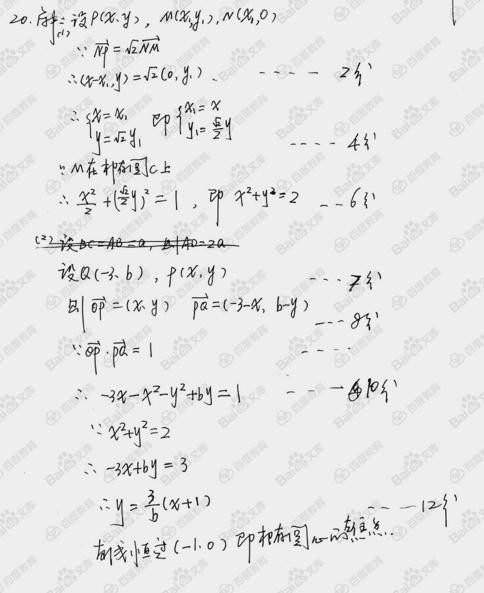 20. 解: 设P(x,y), M(x₁,y₁), N(x₁,0)
(1)
∵ NP→=√2NM→
∴(x-x₁,y)=√2(0,y₁) ---- 2分
∴{x=x₁ y=√2y₁ 即{x₁=x y₁=√2/2y ---- 4分
∵M在椭圆C上
∴ x²/2+(√2/2y)²=1, 即 x²+y²=2 -- 6分
(2) 设BC=AB=a, 则AD=2a
设Q(-3,b), P(x,y) --- 7分
则OP→=(x,y) PQ→=(-3-x, b-y) --- 8分
∵OP→·PQ→=1 ----
∴ -3x-x²-y²+by=1 --- 10分
∵x²+y²=2
∴ -3x+by=3
∴y=3/b(x+1) ---- 12分
恒过(-1,0) 即椭圆的左焦点.
Bai百度文库
百度教育